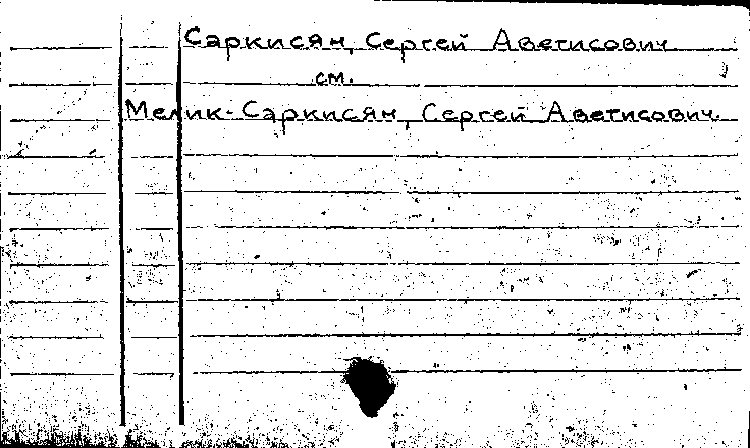 Саркисян, Сергей Аветисович
см.
Мелик-Саркисян, Сергей Аветисович.